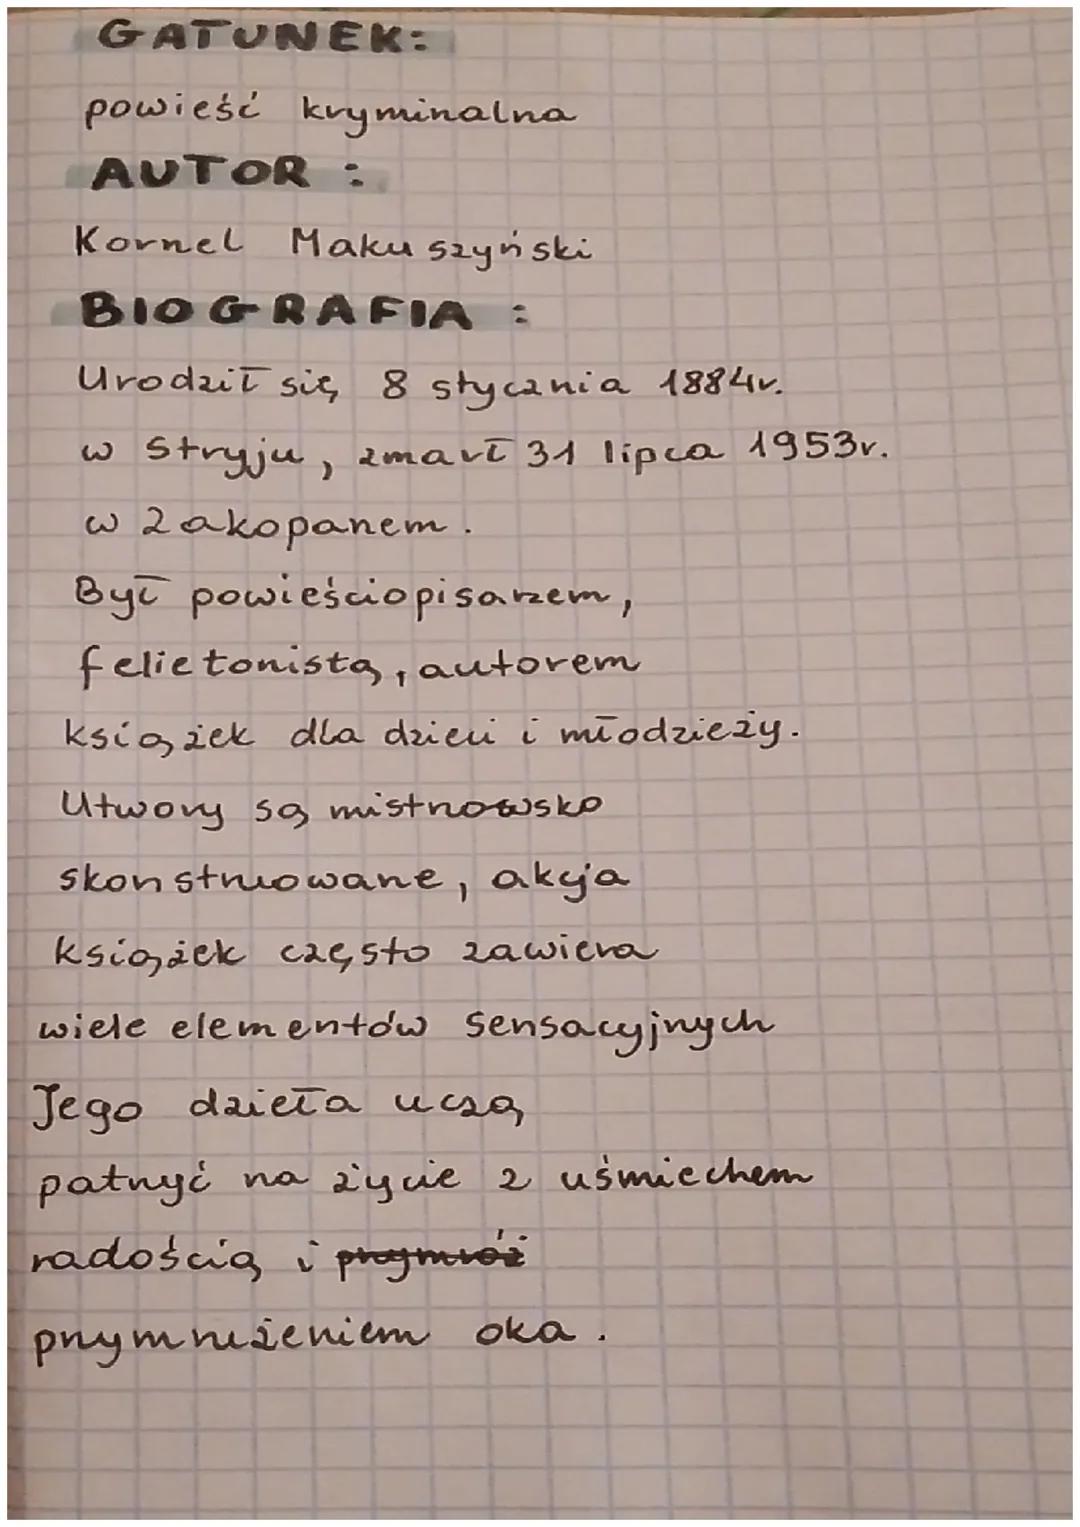 GATUNEK:
powieść kryminalna
AUTOR :
Kornel Makuszyński
BIOGRAFIA :
Urodził się 8 stycznia 1884r.
w Stryju, zmarł 31 lipca 1953r.
w Zakopanem.
Był powieściopisarzem,
felietonistą, autorem
książek dla dzieci i młodzieży.
Utwory są mistrzowsko
skonstruowane, akcja
książek często zawiera
wiele elementów sensacyjnych
Jego dzieła uczą
patrzyć na życie z uśmiechem
radością i przymróż
przymrużeniem oka.